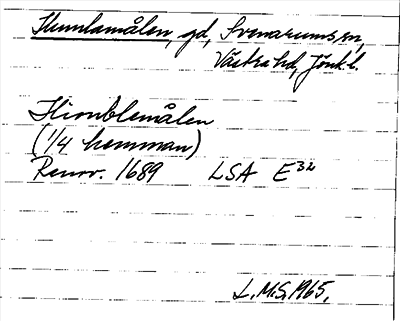 Humlamålen, gd, Svenarums sn,
Västra hd, Jönk. l.
Hironblemålen
(1/4 hemman)
Renov. 1689 LSA E³²
L.M.S. 1965.